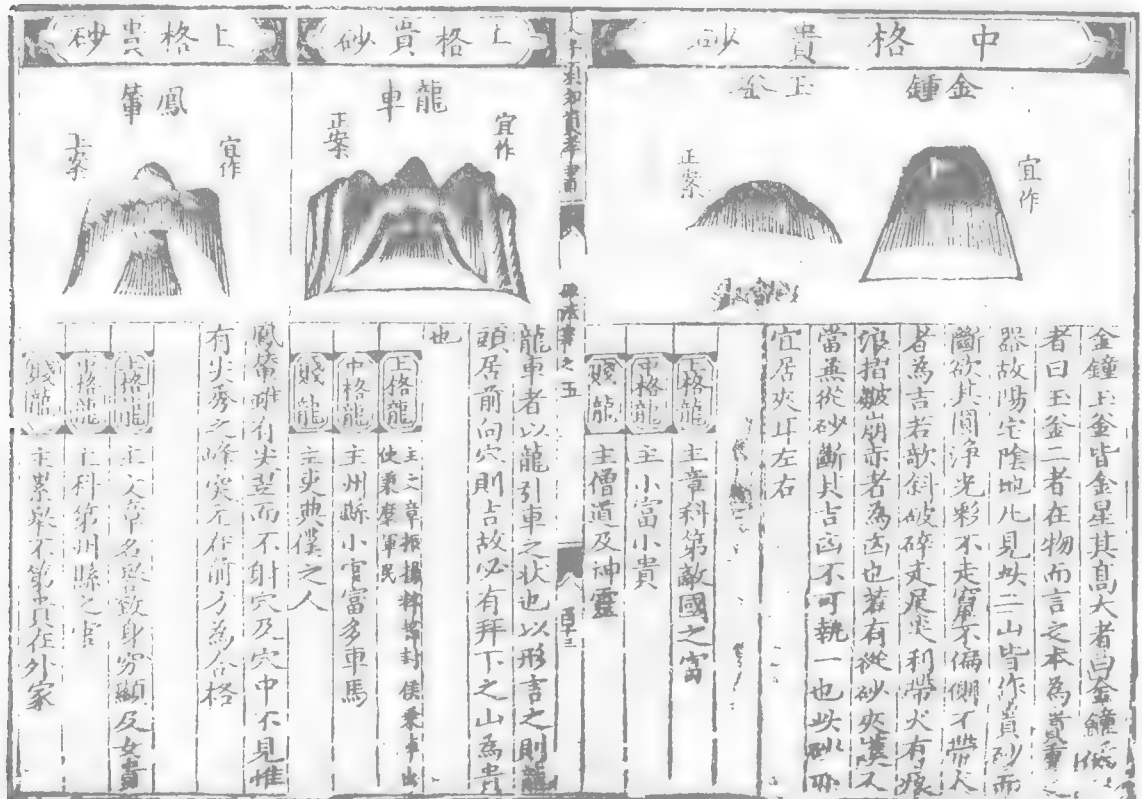 中格貴砂
金鍾
玉釜
宜作
正案
金鐘玉釜皆金星其高大者曰金鐘低
者曰玉釜二者在物而言之本為貴重
器故陽宅陰地凡見此二山皆作貴砂而
斷欲其圓淨光彩不走竄不偏側不帶
者為吉若欹斜破碎走尾尖利帶火有
浪摺皺崩赤者為凶也若有從砂夾護又
當兼從砂斷其吉凶不可執一也此砂
宜居夾耳左右
上格龍
主章科第敵國之富
中格龍
主小富小貴
賤龍
主僧道及神靈
人子須知資孝書
砂法卷之五
上格貴砂
龍車
宜作
正案
龍車者以龍引車之狀也以形言之則龍
頭居前向穴則吉故必有拜下之山為貴
也
上格龍
主之章掀揭科第封侯乘車出
使秉摩軍民
中格龍
主州縣小官富多車馬
賤龍
主吏典僕之人
上格貴砂
鳳輦
宜作
正案
鳳輦雖有尖而不射穴及穴中不見惟
有尖秀之峰突兀在前方為合格
上格龍
主文章名身榮顯及女貴
中格龍
主科第州縣之官
賤龍
主累舉不第貴在外家